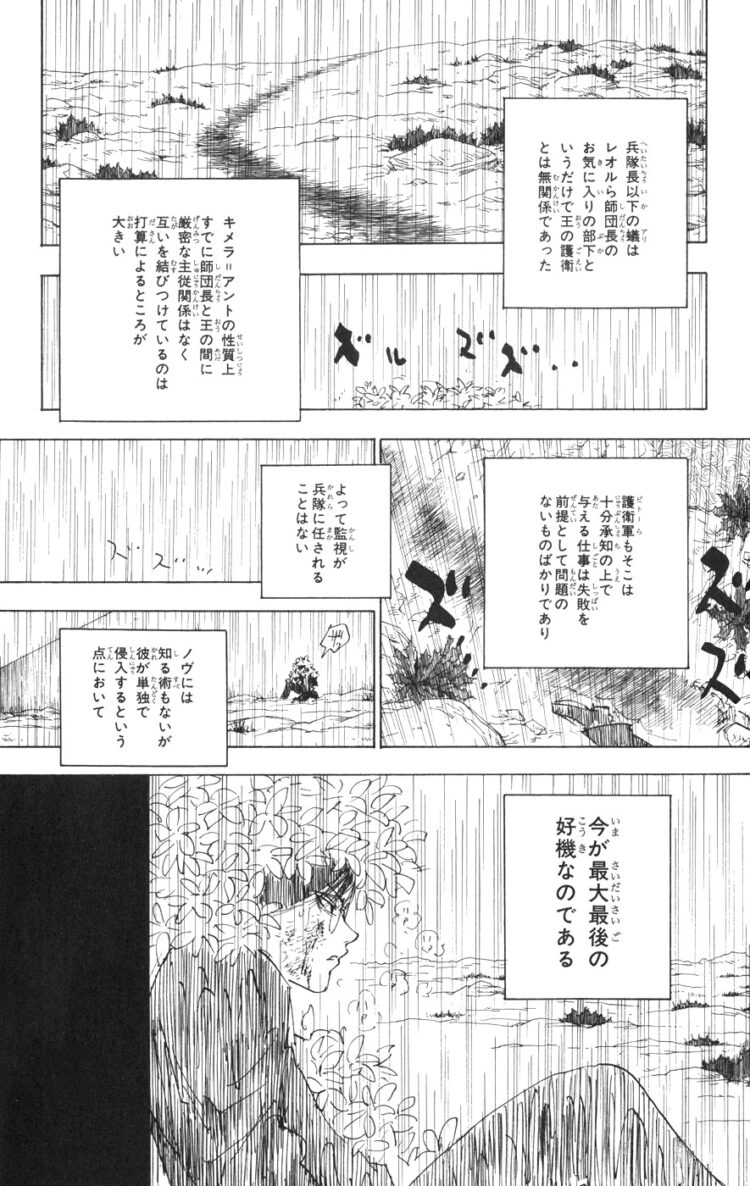 兵隊長以下の蟻は
レオルら師団長の
お気に入りの部下と
いうだけで王の護衛
とは無関係であった
キメラ=アントの性質上
すでに師団長と王の間に
厳密な主従関係はなく
互いを結びつけているのは
打算によるところが
大きい
ズズ…
ズル
護衛軍もそこは
十分承知の上で
与える仕事は失敗を
前提として問題の
ないものばかりであり
ズズ
ズ
よって監視が
兵隊に任される
ことはない
ズズ…
ノヴには
知る術もないが
彼が単独で
侵入するという
点において
今が最大最後の
好機なのである